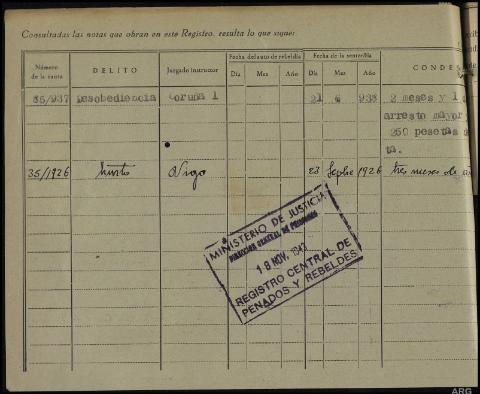 Consultadas las notas que obran en este Registro, resulta lo que sigue:
Número de la causa
DELITO
Juzgado instructor
Fecha del auto de rebeldía
Día Mes Año
Fecha de la sentencia
Día Mes Año
CONDE
35/937 Desobediencia Coruña 1 21 6 938 2 meses y 1
arresto mayor
250 pesetas
ta.
35/1926 hurto Vigo 23 Sepbre 1926 tres meses de
MINISTERIO DE JUSTICIA
DIRECCION GENERAL DE PRISIONES
18 NOV. 1943
REGISTRO CENTRAL DE
PENADOS Y REBELDES
ARG